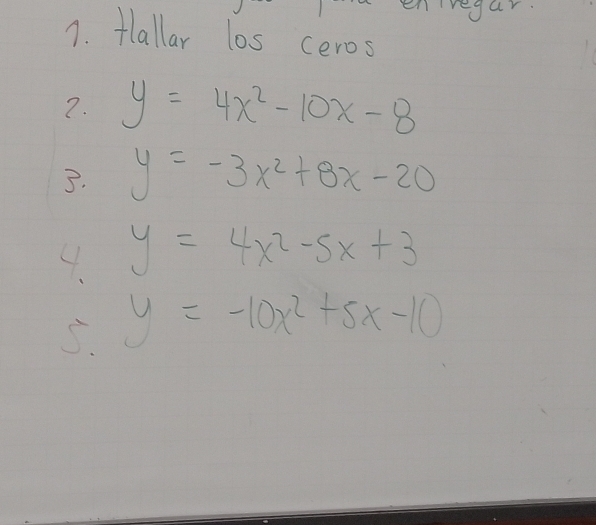 para entregar.
1. Hallar los ceros
2. y = 4x² - 10x - 8
3. y = -3x² + 8x - 20
4. y = 4x² - 5x + 3
5. y = -10x² + 5x - 10